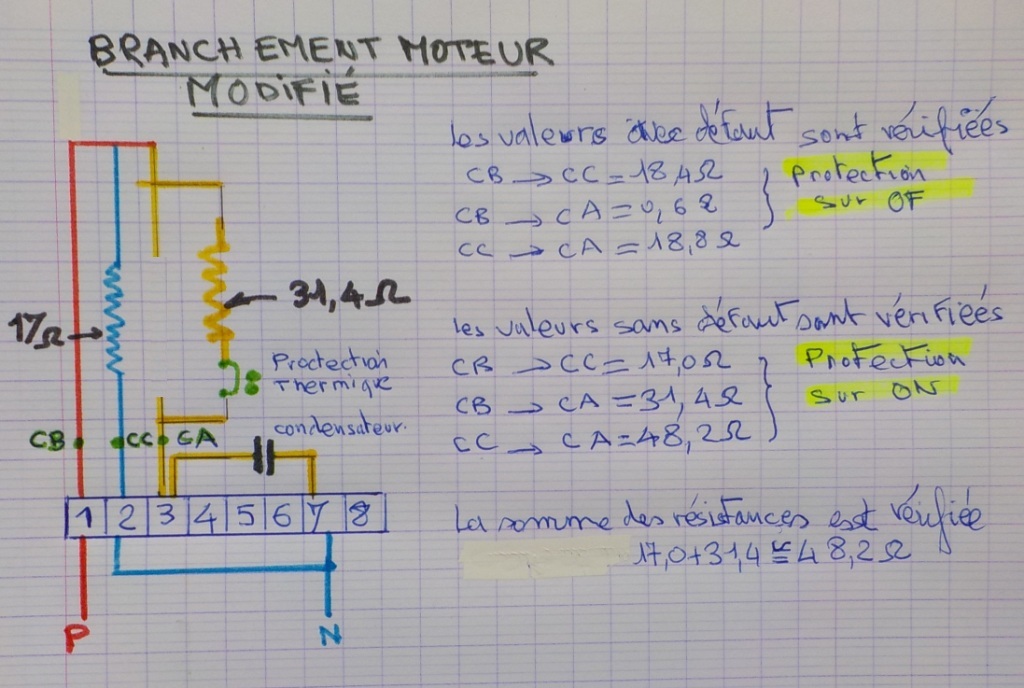 BRANCHEMENT MOTEUR
MODIFIÉ
les valeurs avec défaut sont vérifiées
CB → CC = 18,4Ω
CB → CA = 0,6Ω
CC → CA = 18,8Ω
Protection
sur OF
31,4Ω
17Ω
Proctection
Thermique
les valeurs sans défaut sont vérifiées
CB → CC = 17,0Ω
CB → CA = 31,4Ω
CC → CA = 48,2Ω
Protection
sur ON
condensateur.
CB CC CA
1 2 3 4 5 6 7 8
La somme des résistances est vérifiée
17,0+31,4 ≅ 48,2Ω
P N